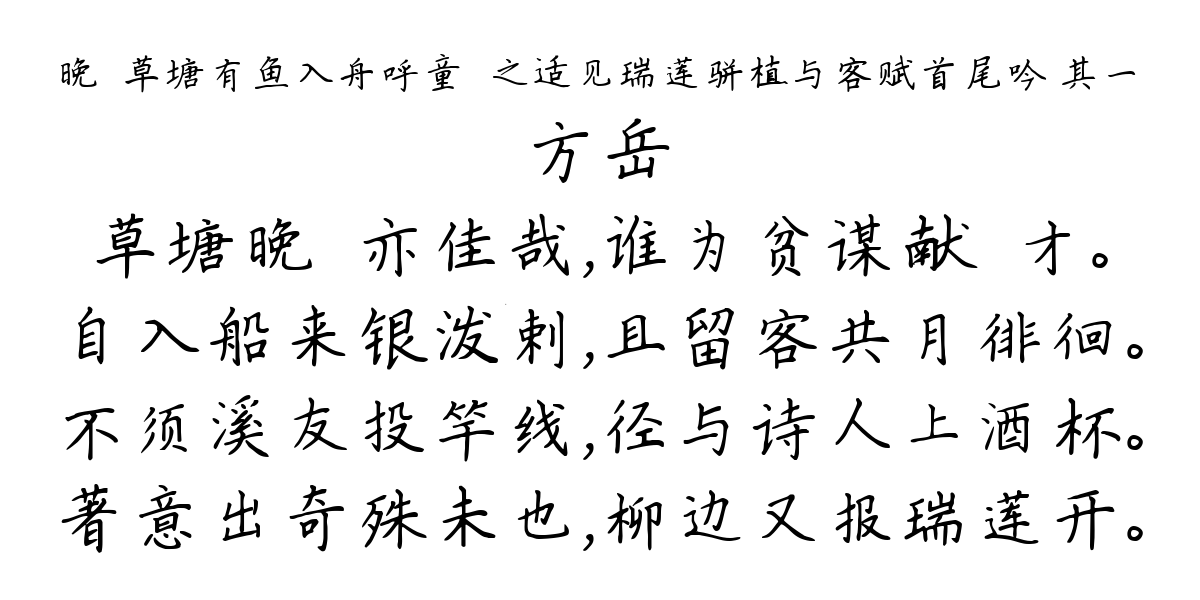 晚 草塘有鱼入舟呼童 之适见瑞莲骈植与客赋首尾吟 其一
方岳
草塘晚 亦佳哉,谁为贫谋献 才。
自入船来银泼剌,且留客共月徘徊。
不须溪友投竿线,径与诗人上酒杯。
著意出奇殊未也,柳边又报瑞莲开。